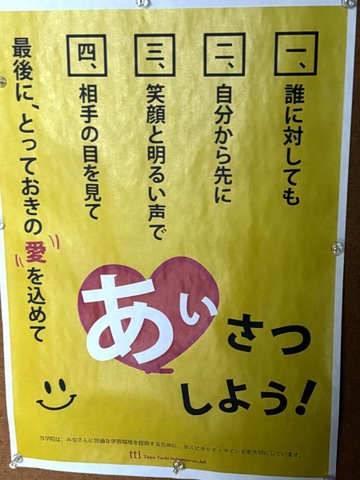 一、誰に対しても
二、自分から先に
三、笑顔と明るい声で
四、相手の目を見て
最後に、とっておきの愛を込めて
あいさつ
しよう!
当学院は、みなさんに快適な学習環境を提供するために、ホスピタリティマインドを大切にしています。
tti